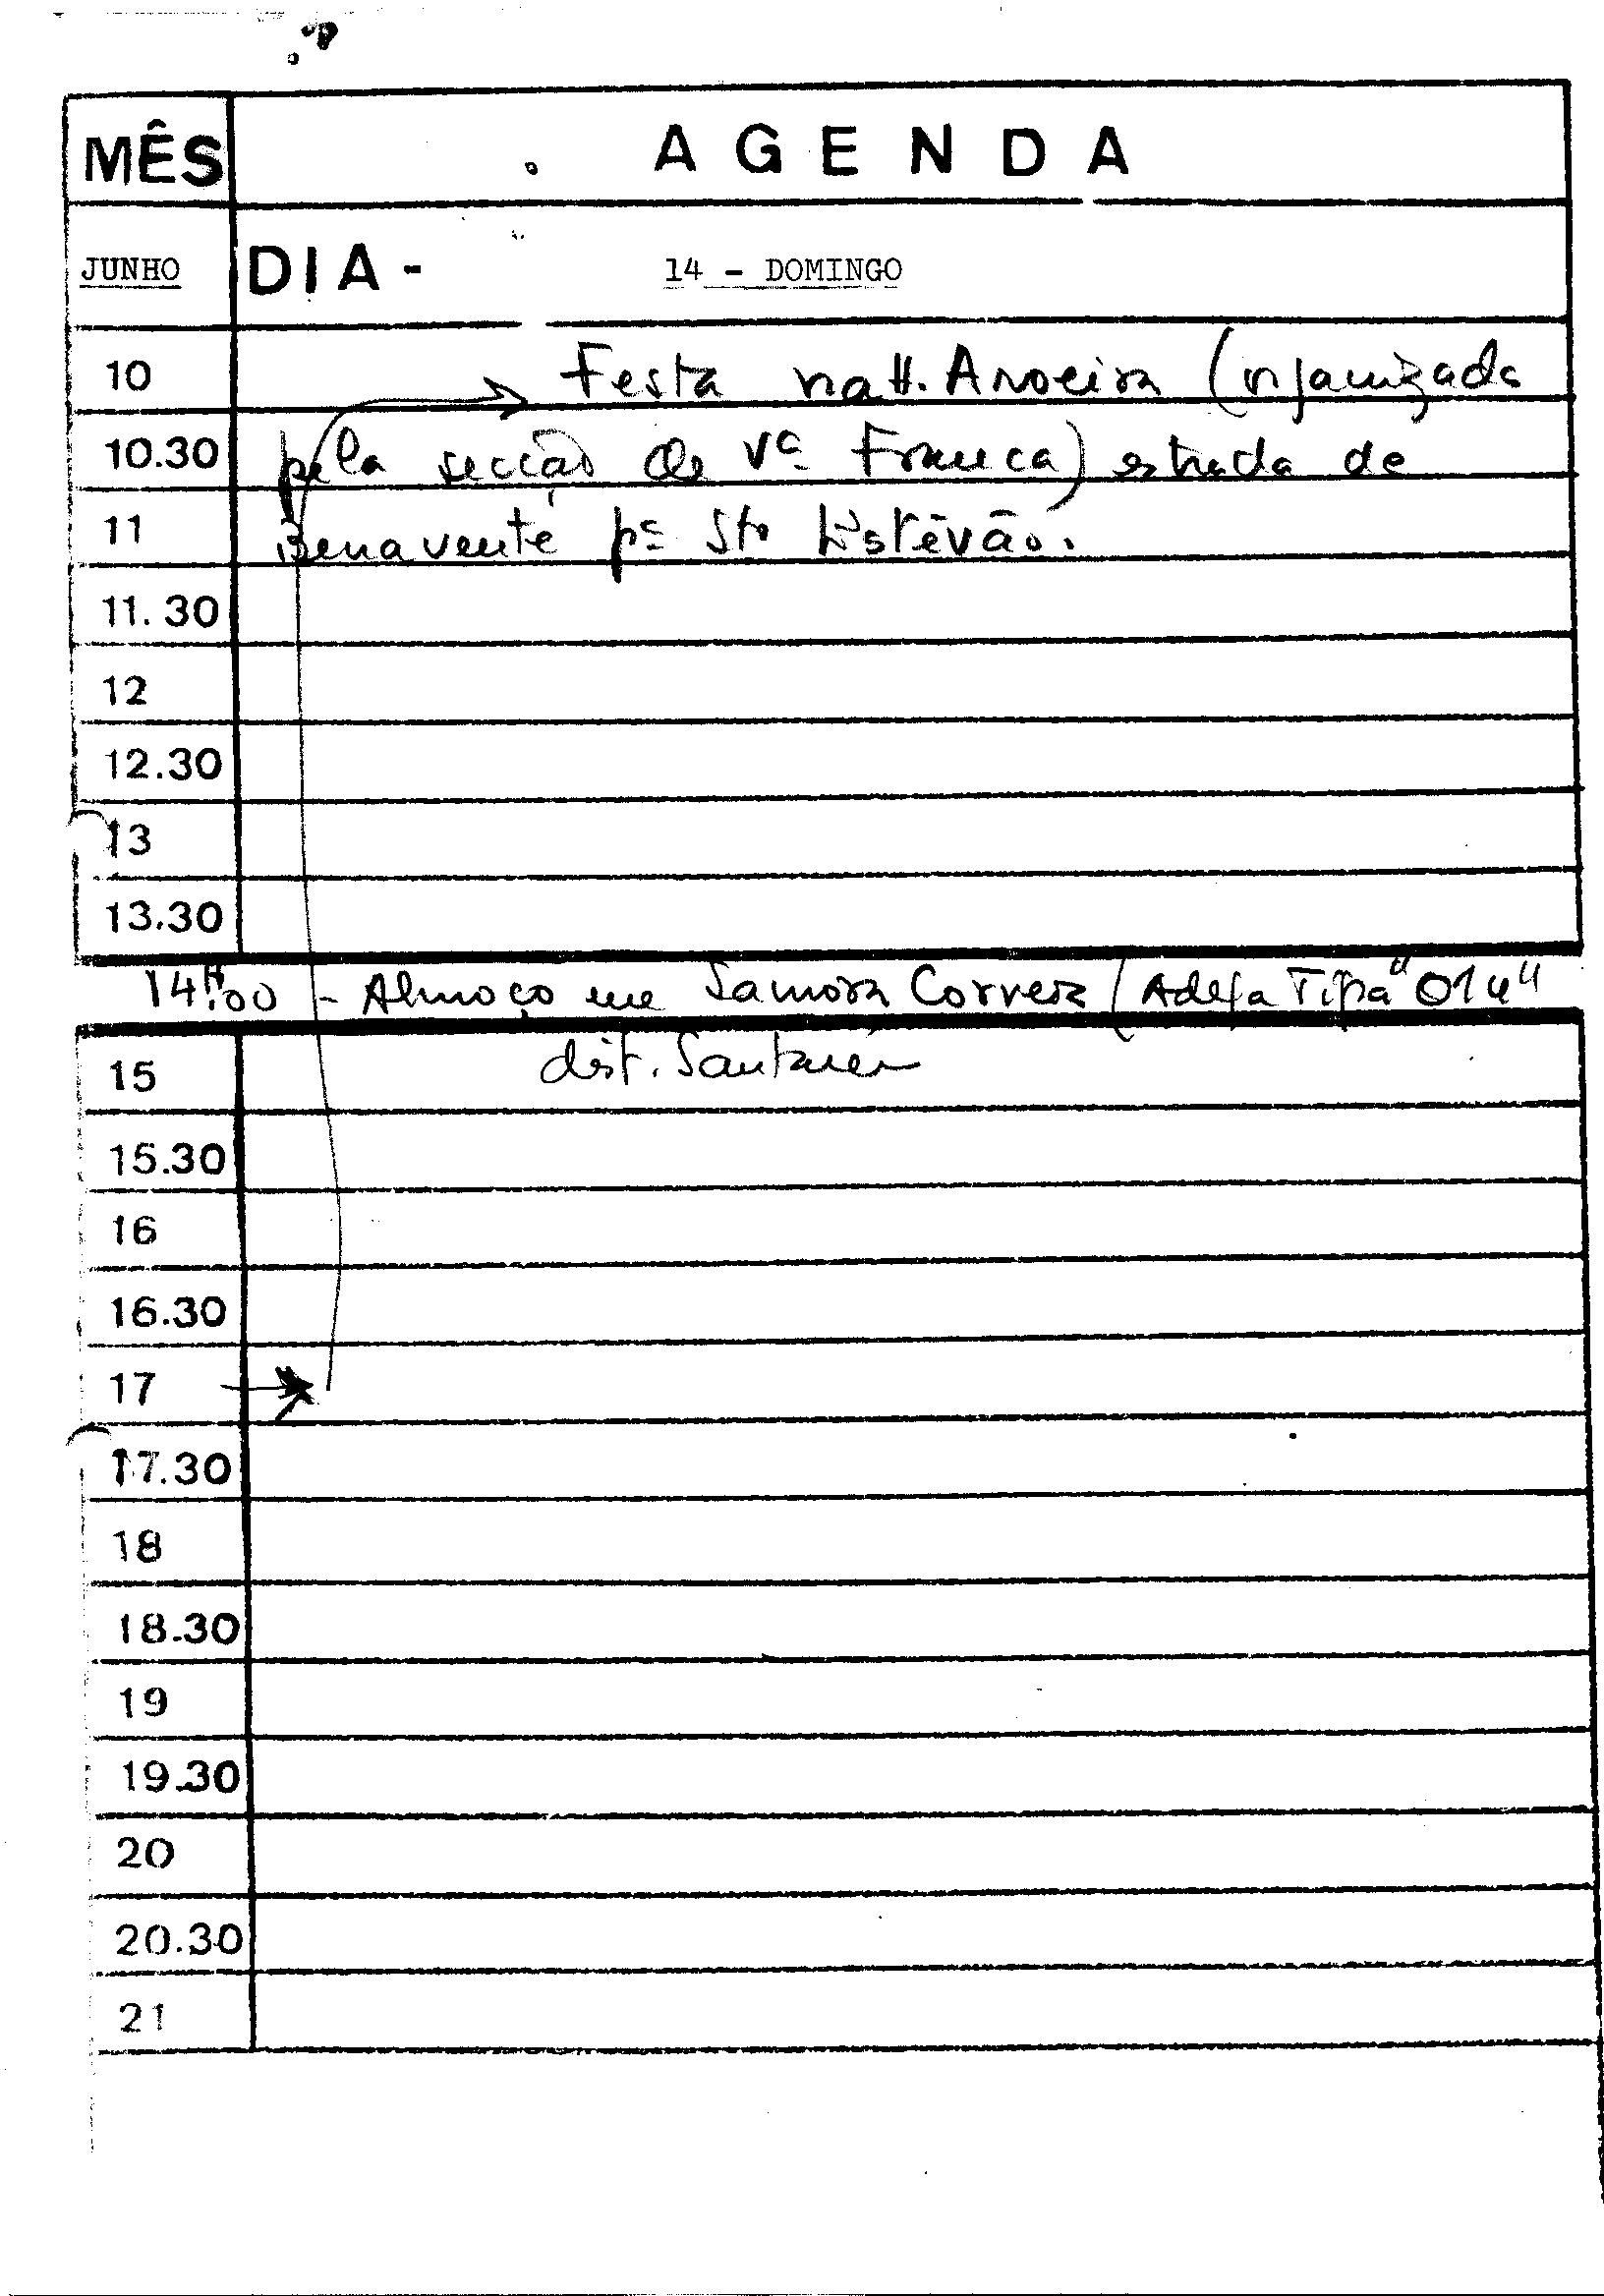 MÊS
AGENDA
JUNHO
DIA - 14 - DOMINGO
10 Festa na H. Aroeira (organizada
10.30 pela secção de Vª Franca) estrada de
11 Benavente pª Sto Estêvão.
11.30
12
12.30
13
13.30
14H.00 - Almoço em Samora Correia (Adega Típa "
15 dist. Santarém
15.30
16
16.30
17
17.30
18
18.30
19
19.30
20
20.30
21